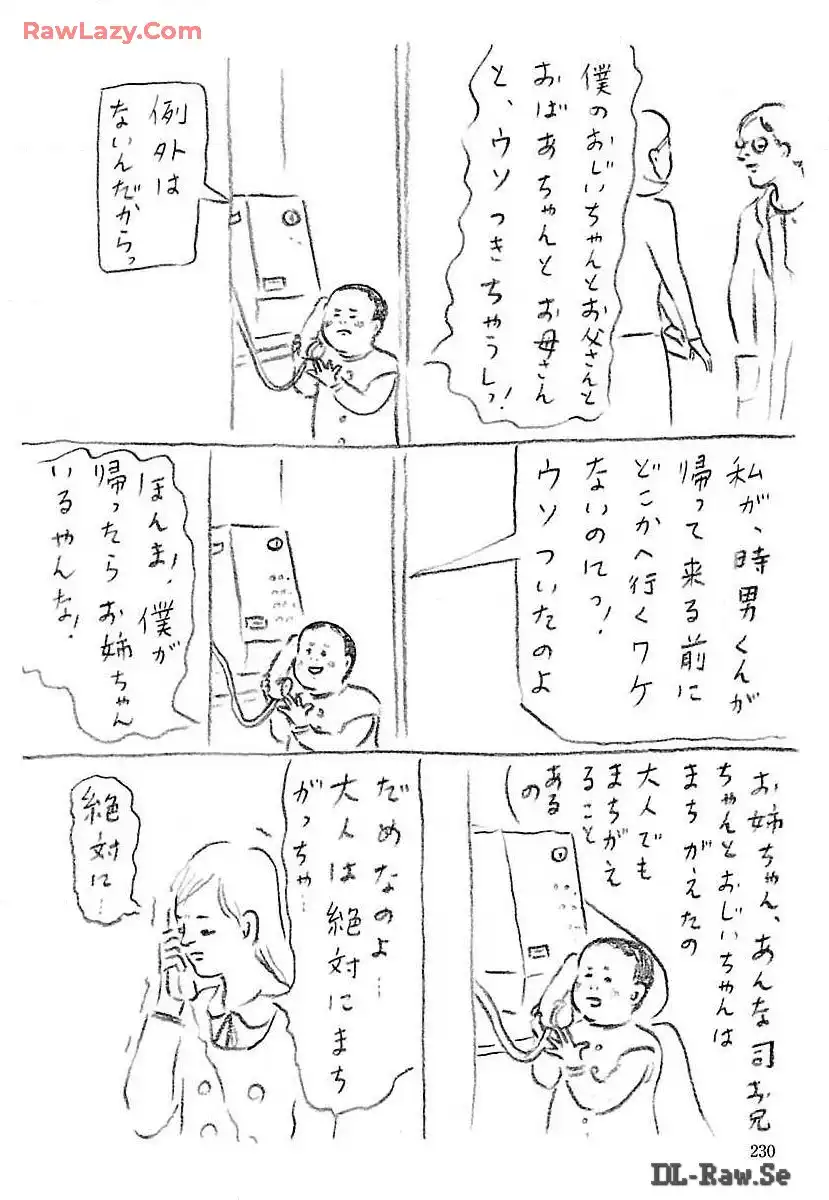 RawLazy.Com
僕のおじいちゃんとお父さんと
おばあちゃんとお母さん
と、ウソつきちゃうしっ!
例外は
ないんだからっ
私が、時男くんが
帰って来る前に
どこかへ行くワケ
ないのにっ!
ウソついたのよ
ほんま!僕が
帰ったらお姉ちゃん
いるやんな!
お姉ちゃん、あんな司お兄
ちゃんとおじいちゃんは
まちがえたの
大人でも
まちがえ
ること
ある
の
だめなのよ…
大人は絶対にまち
がっちゃ…
絶対に…
230
DL-Raw.Se